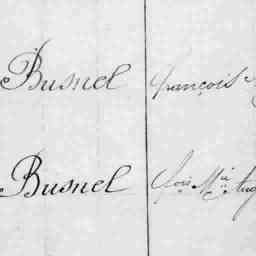 Busnel françois
Busnel fçois Mie Aug